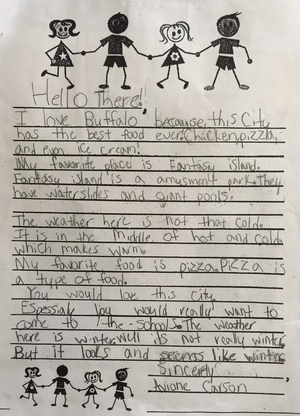 Hello There!
I love Buffalo, because, this City
has the best food ever. Chicken, pizza,
and even Ice cream!
My favorite place is Fantasy island.
Fantasy island is a amusment park. They
have waterslides and giant pools.
The weather here is not that cold.
It is in the Middle, of hot and cold
which makes warm.
My favorite food is pizza. Pizza is
a type of food.
You would love this city.
Espessialy You would really want to
come to the schools. The weather
here is winter. Wull its not really winter
But it looks and seemes like winter.
Sincerly
Carson